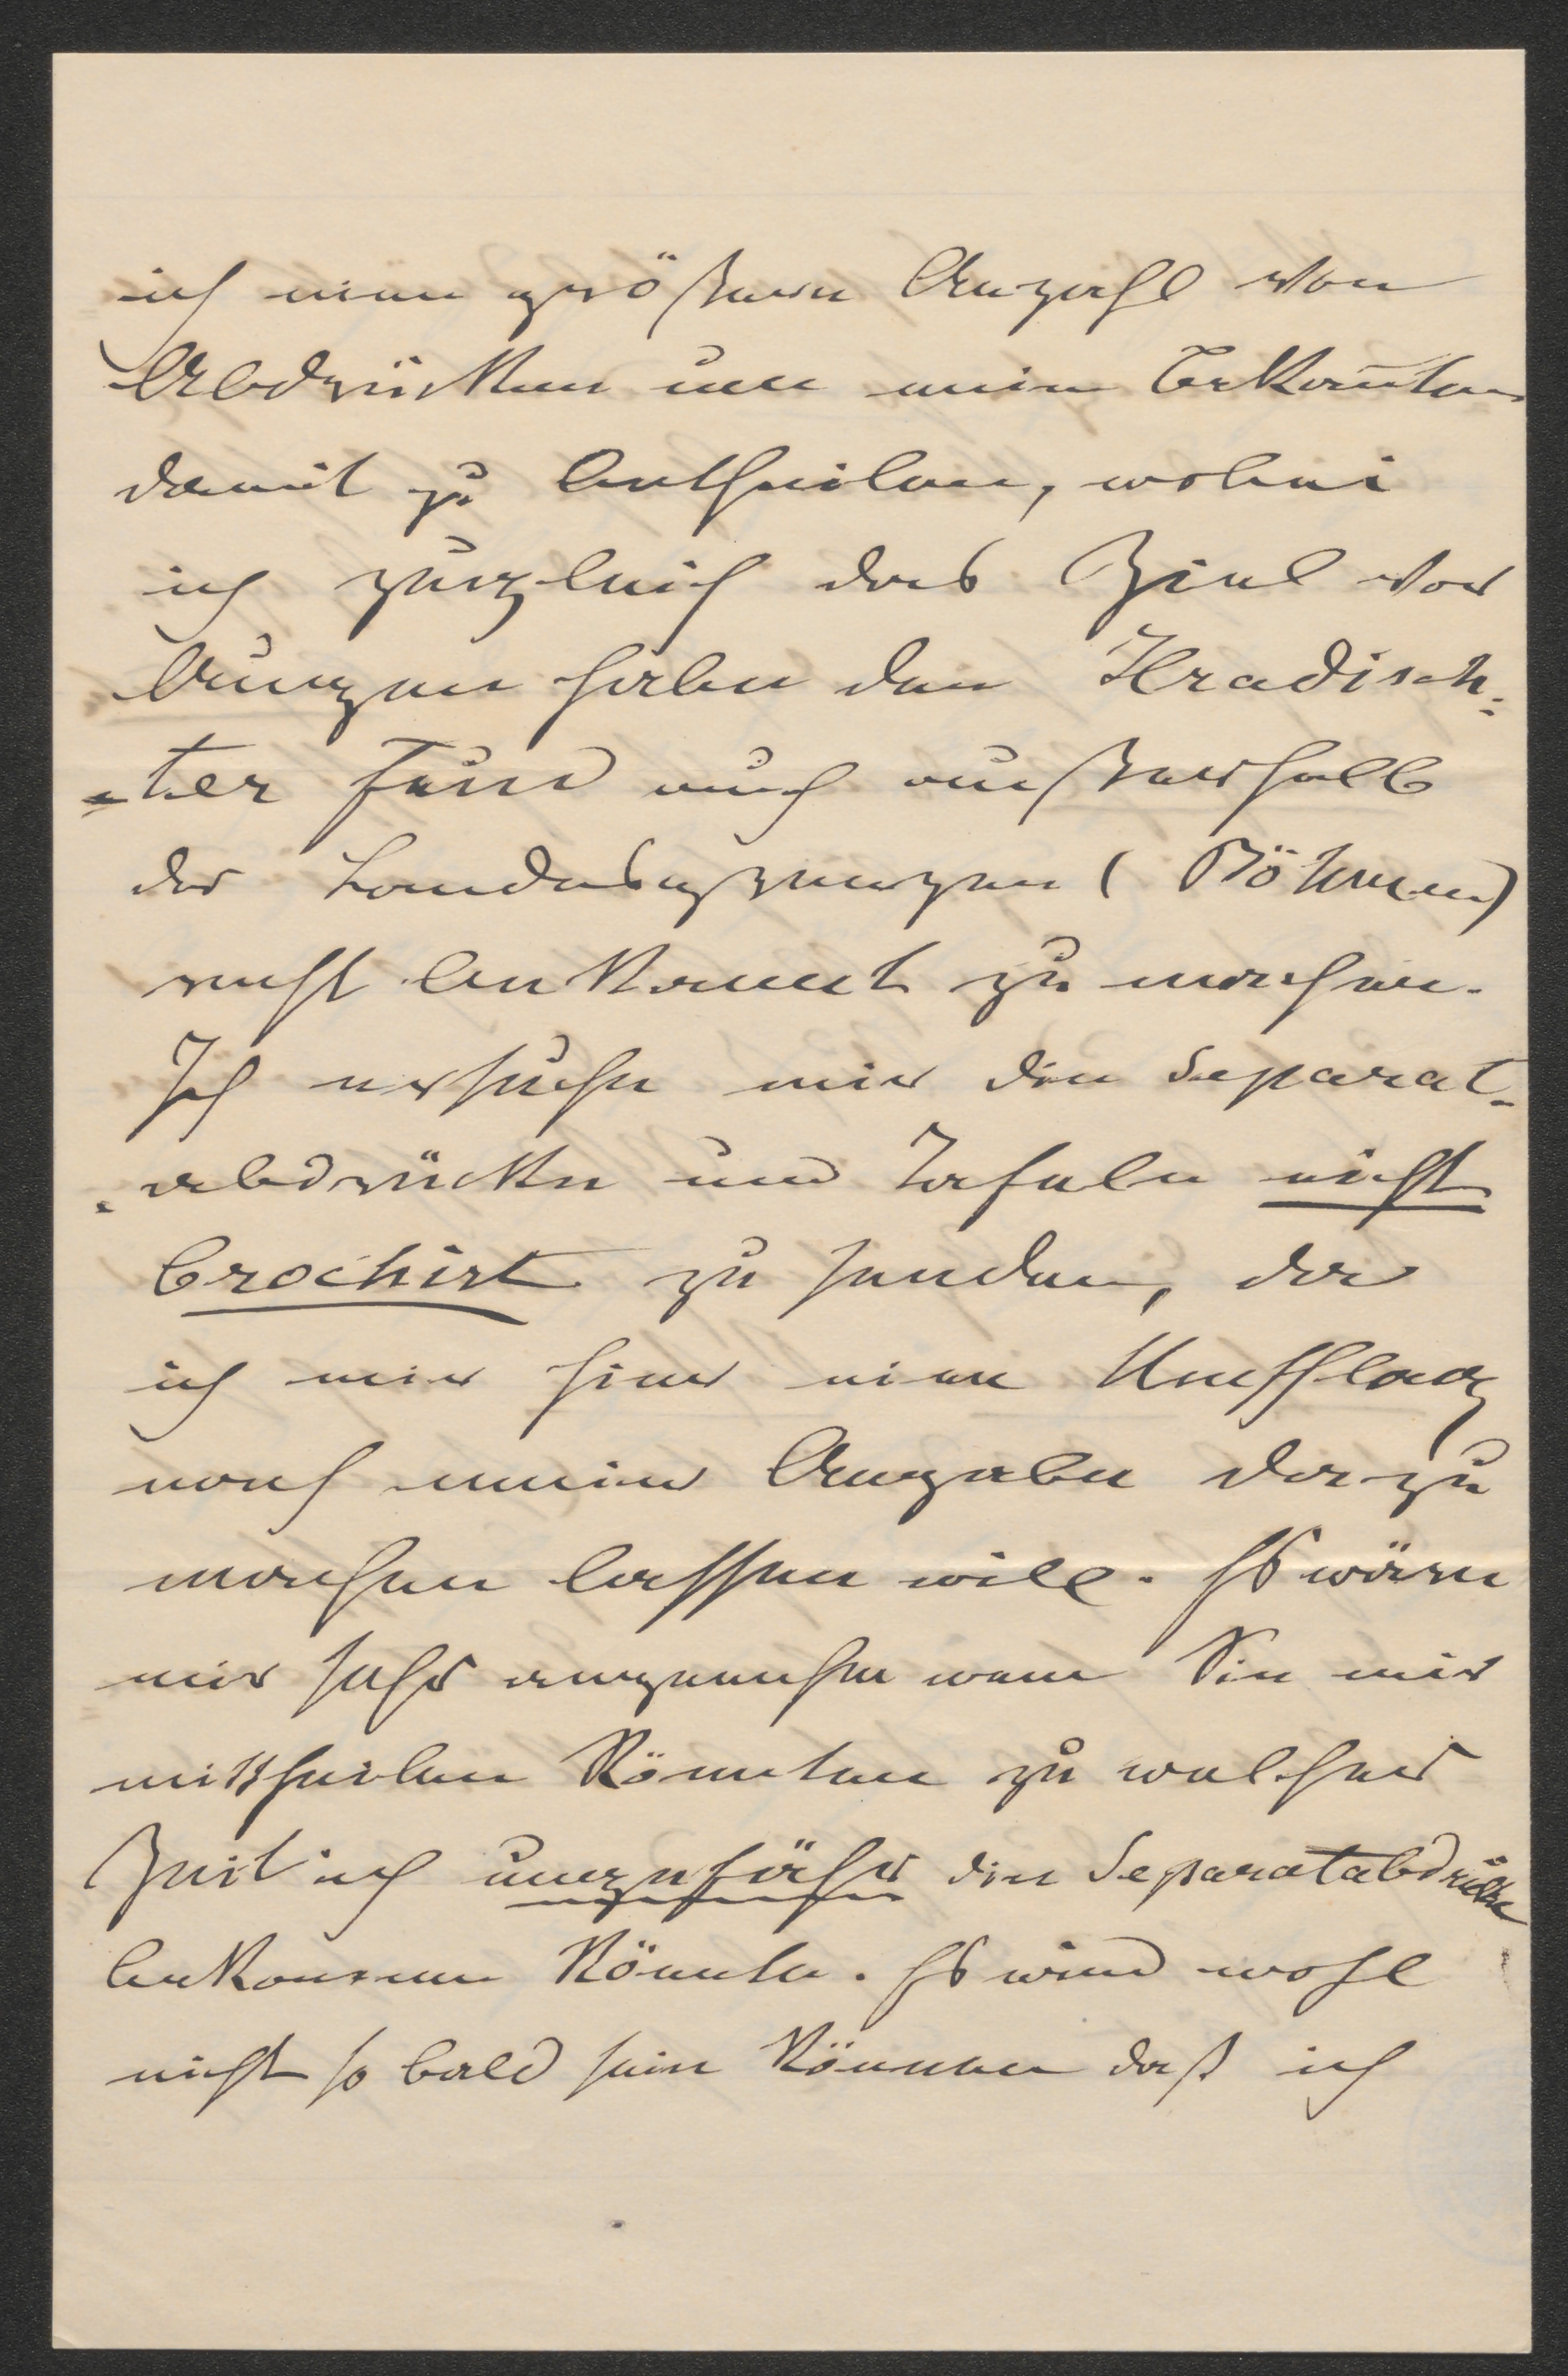 ich eine größere Anzahl von
Abdrücken um meine Bekannten
damit zu betheilen, wobei
ich zugleich das Ziel vor
Augen habe den Hradisch-
-ter Fund auch außerhalb
der Landesgrenzen (Böhmen)
recht bekannt zu machen.
Ich ersuche mir die Separat-
-abdrücke und Tafeln nicht
brochirt zu senden, da
ich mir hier einen Umschlag
nach meiner Angabe dazu
machen lassen will. Es wäre
mir sehr angenehm wenn Sie mir
mittheilen könnten zu welcher
Zeit ich ungefähr die Separatabdrücke
bekommen könnte. Es wird wohl
nicht so bald sein können daß ich